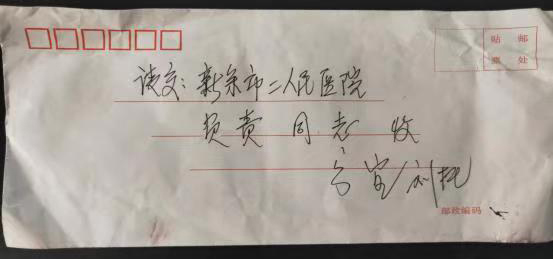 贴 邮
票 处
请交：新余市二人民医院
负责 同志 收
邮政编码